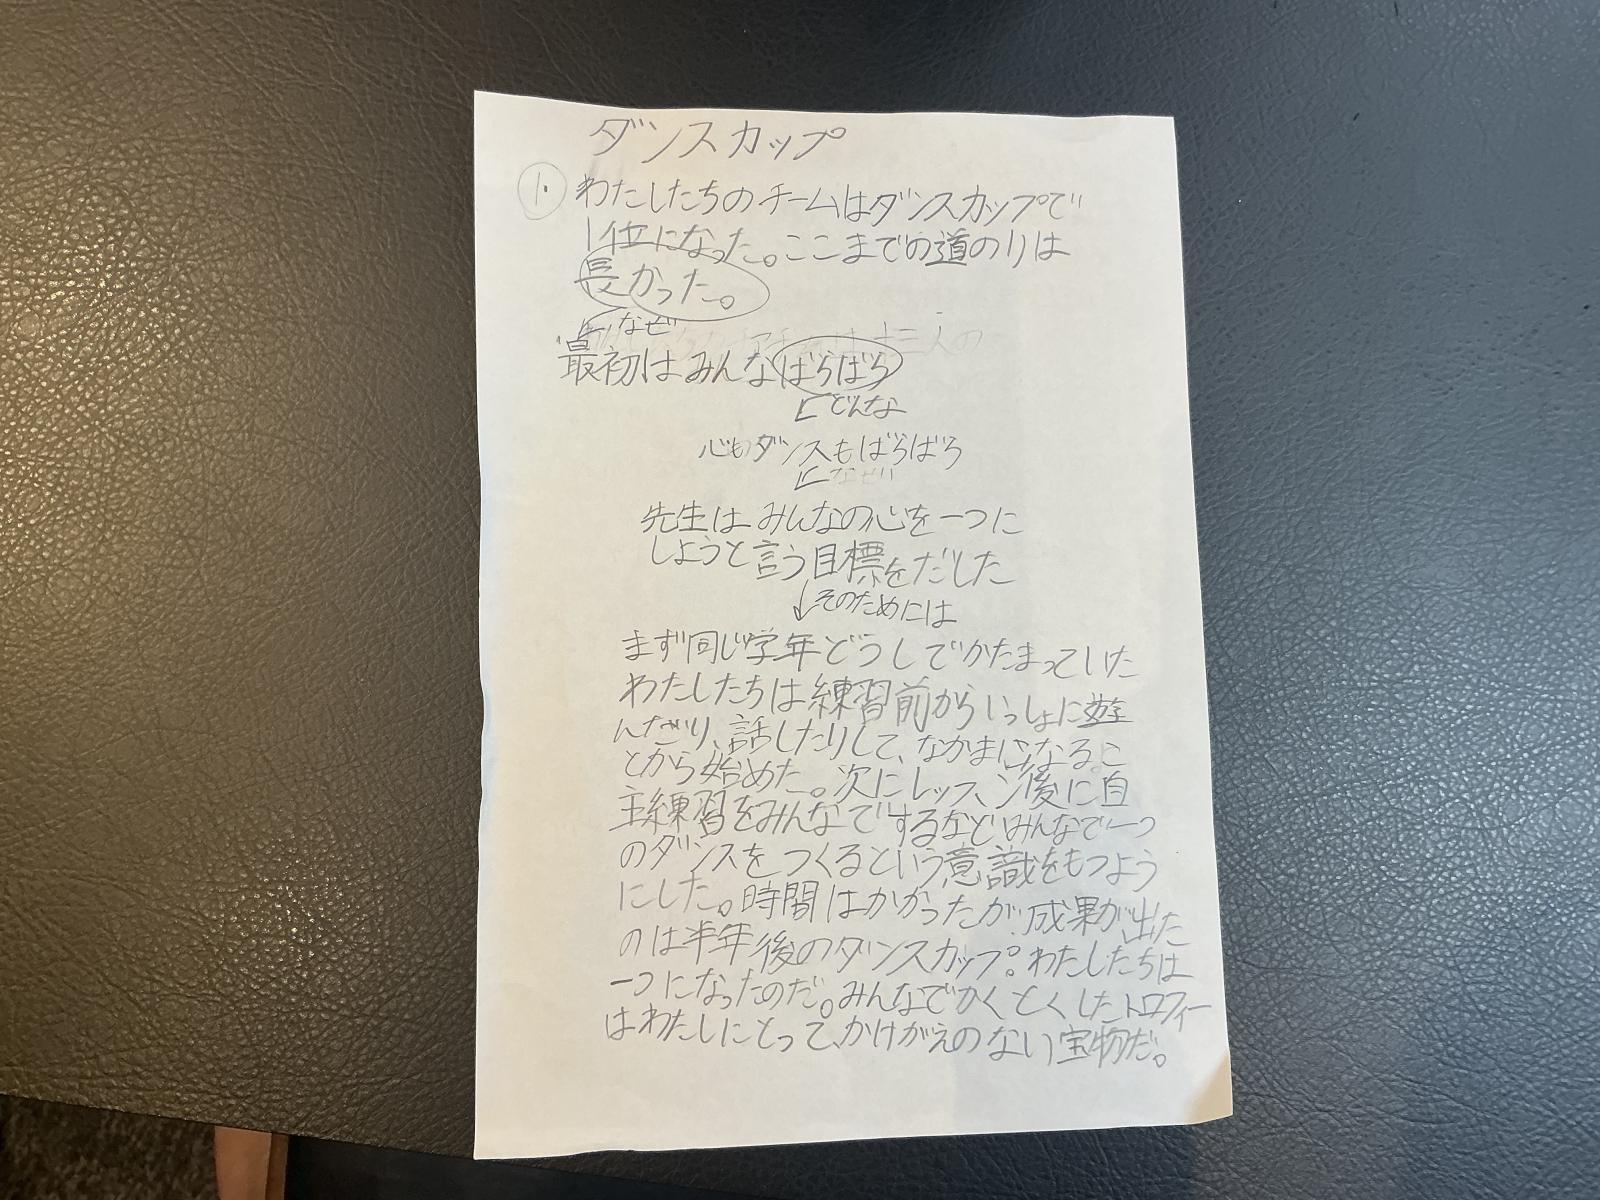 ダンスカップ
1. わたしたちのチームはダンスカップで
1位になった。ここまでの道のりは
長かった。
なぜ
最初はみんなばらばら
どんな
心もダンスもばらばら
なぜ
先生はみんなの心を一つに
しようと言う目標をだした
↓そのためには
まず同じ学年どうしでかたまっていた
わたしたちは練習前からいっしょに遊
んだり、話したりして、なかまになるこ
とから始めた。次にレッスン後に自
主練習をみんなでするなどみんなで一つ
のダンスをつくるという意識をもつよう
にした。時間はかかったが、成果が出た
のは半年後のダンスカップ。わたしたちは
一つになったのだ。みんなでかくとくしたトロフィー
はわたしにとって、かけがえのない宝物だ。